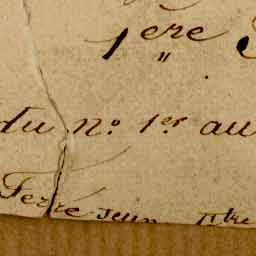 1ère
du nº 1er au
Ferre jeun